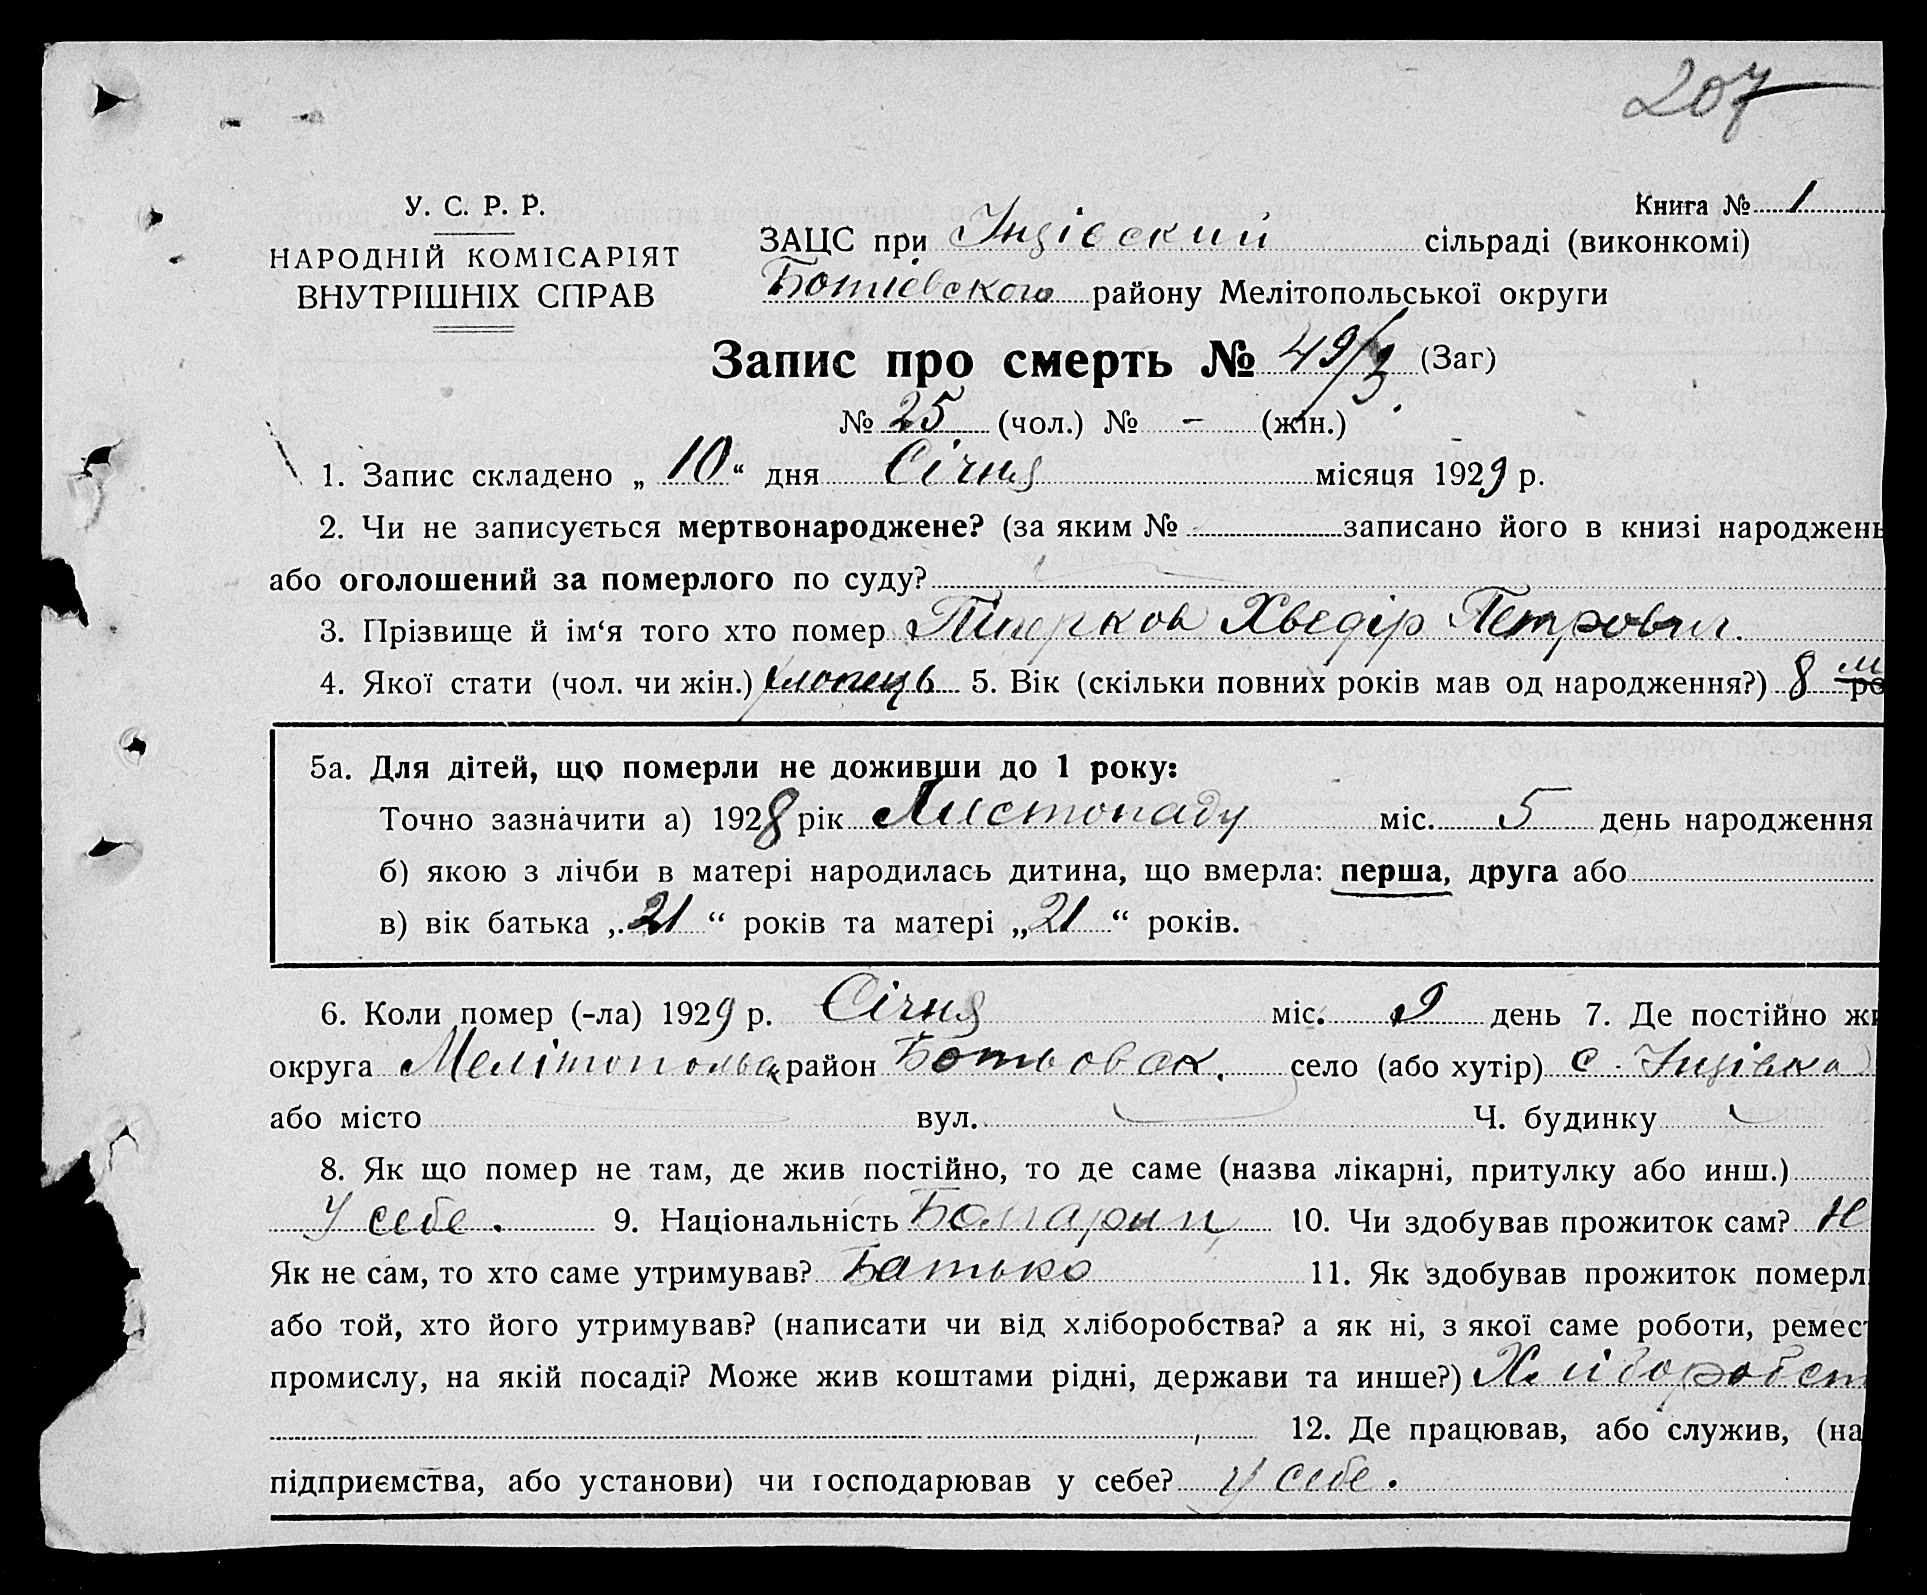 207
У. С. Р. Р.
НАРОДНІЙ КОМІСАРІЯТ
ВНУТРІШНІХ СПРАВ
Книга № 1
ЗАЦС при Інзівский сільраді (виконкомі)
Ботіевского району Мелітопольської округи
Запис про смерть № 49/3 (Заг)
№ 25 (чол.) № - (жін.)
1. Запис складено „ 10 “ дня Січня місяця 1929 р.
2. Чи не записується мертвонароджене? (за яким № записано його в книзі народжень
або оголошений за померлого по суду?
3. Прізвище й ім‘я того хто помер Хведір Петрович.
4. Якої стати (чол. чи жін.) хлопець 5. Вік (скільки повних років мав од народження?) 8 м ро
5а. Для дітей, що померли не доживши до 1 року:
Точно зазначити а) 1928 рік Листопаду міс. 5 день народження
б) якою з лічби в матері народилась дитина, що вмерла: перша, друга або
в) вік батька „ 21 “ років та матері „ 21 “ років.
6. Коли помер (-ла) 1929 р. Січня міс. 9 день 7. Де постійно жи
округа Мелітопольск район Ботьовск. село (або хутір) с. Інзівка
або місто вул. Ч. будинку
8. Як що помер не там, де жив постійно, то де саме (назва лікарні, притулку або инш.)
У себе. 9. Національність Болгарин 10. Чи здобував прожиток сам? Н
Як не сам, то хто саме утримував? Батько 11. Як здобував прожиток померл
або той, хто його утримував? (написати чи від хліборобства? а як ні, з якої саме роботи, ремес
промислу, на якій посаді? Може жив коштами рідні, держави та инше?) Хліборобст
12. Де працював, або служив, (на
підприємства, або установи) чи господарював у себе? У себе.